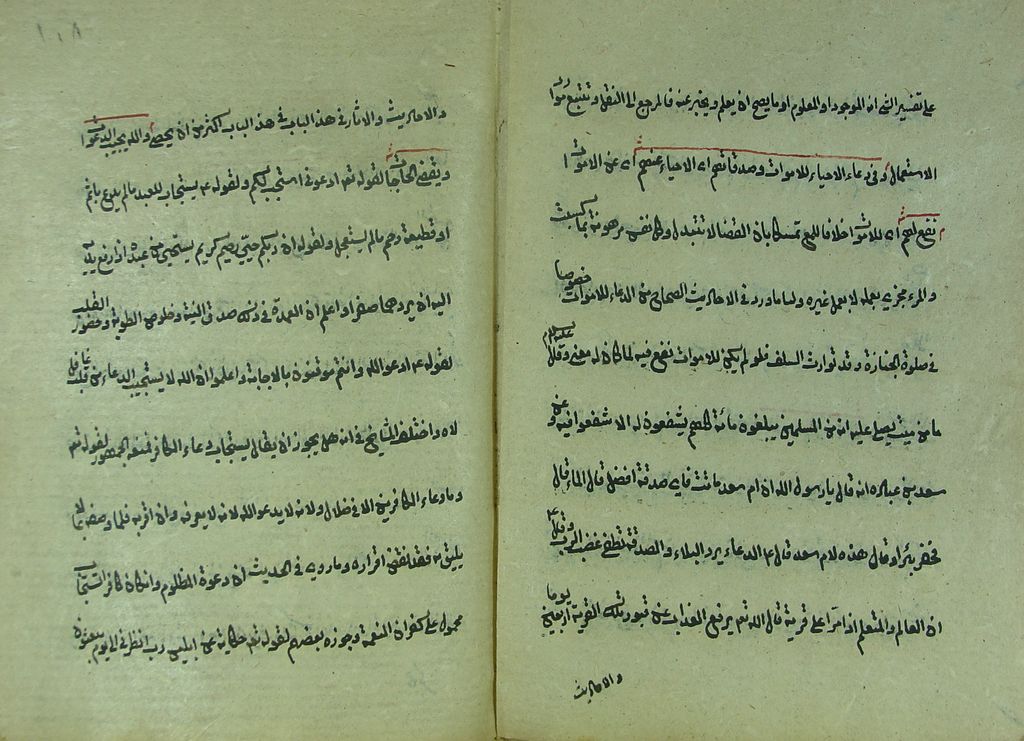 على تفسير الشئ انه الموجود او المعلوم او ما يصح ان يعلم ويخبر عنه فالمرجع الى النقل وتتبع موارد
الاستعمال وفى دعاء الاحياء للاموات وصدقاتهم اى الاحياء عنهم اى عن الاموات
نفع لهم اى للاموات خلافا للمعتزلة تمسكا بان القضا لا تتبدل وكل نفس مرهونة بما كسبت
والمرء مجزى بعمله لا بعمل غيره ولنا ما ورد فى الاحاديث الصحاح من الدعاء للاموات خصوصا
فى صلوة الجنازة وقد توارث السلف فلو لم يكن للاموات نفع فيه لما كان له معنى وقال عليه السلام
ما من ميت يصلى عليه امة من المسلمين يبلغون مائة كلهم يشفعون له الا شفعوا فيه وعن
سعد بن عبادة انه قال يا رسول الله ان ام سعد ماتت فاى صدقة افضل قال الماء قال
فحفر بئرا وقال هذه لام سعد قال عم الدعاء يرد البلاء والصدقة تطفئ غضب الرب وقال عم
ان العالم والمتعلم اذا مرا على قرية فان الله تع يرفع العذاب عن قبور تلك القرية اربعين يوما
والاحاديث
١٠٨
والاحاديث والاثار فى هذا الباب فى هذ الباب اكثر من ان يحصى والله يجيب الدعوات
ويقضى الحاجات لقوله تع ادعونى استجب لكم ولقوله عم يستجاب للعبد ما لم يدع باثم
او قطيعة رحم ما لم يستعجل ولقوله ان ربكم حيى كريم يستحيى من عبده اذا رفع يديه
اليه ان يردهما صفرا واعلم ان العمدة فى ذلك صدق النية وخلوص الطوية وحضور القلب
لقوله عم ادعو الله وانتم موقنون بالاجابة واعلموا ان الله لا يستجيب الدعاء من قلب غافل
لاه واختلف المشايخ فى انه هل يجوز ان يقال يستجاب دعاء الكافر فمنعه الجمهور لقوله تع
وما دعاء الكافرين الا فى ضلال ولانه لا يدعو الله لانه لا يعرفه وان اقر به فلما وصفه بما لا
يليق به فقد نقض اقراره وما روى فى الحديث ان دعوة المظلوم وان كان كافرا تستجاب
محمول على كفران النعمة وجوزه بعضهم لقوله تع حكاية عن ابليس رب انظرنى الى يوم يبعثون